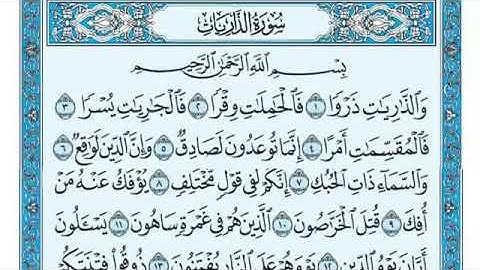 سُورَةُ الذَّارِيَاتِ
بِسْمِ اللَّهِ الرَّحْمَٰنِ الرَّحِيمِ
وَالذَّارِيَاتِ ذَرْوًا ١ فَالْحَامِلَاتِ وِقْرًا ٢ فَالْجَارِيَاتِ يُسْرًا ٣
فَالْمُقَسِّمَاتِ أَمْرًا ٤ إِنَّمَا تُوعَدُونَ لَصَادِقٌ ٥ وَإِنَّ الدِّينَ لَوَاقِعٌ ٦
وَالسَّمَاءِ ذَاتِ الْحُبُكِ ٧ إِنَّكُمْ لَفِي قَوْلٍ مُخْتَلِفٍ ٨ يُؤْفَكُ عَنْهُ مَنْ
أُفِكَ ٩ قُتِلَ الْخَرَّاصُونَ ١٠ الَّذِينَ هُمْ فِي غَمْرَةٍ سَاهُونَ ١١ يَسْأَلُونَ
أَيَّانَ يَوْمُ الدِّينِ ١٢ يَوْمَ هُمْ عَلَى النَّارِ يُفْتَنُونَ ١٣ ذُوقُوا فِتْنَتَكُمْ